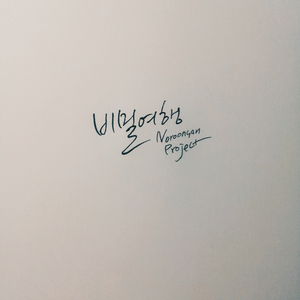 비밀여행
Noroongan
Project